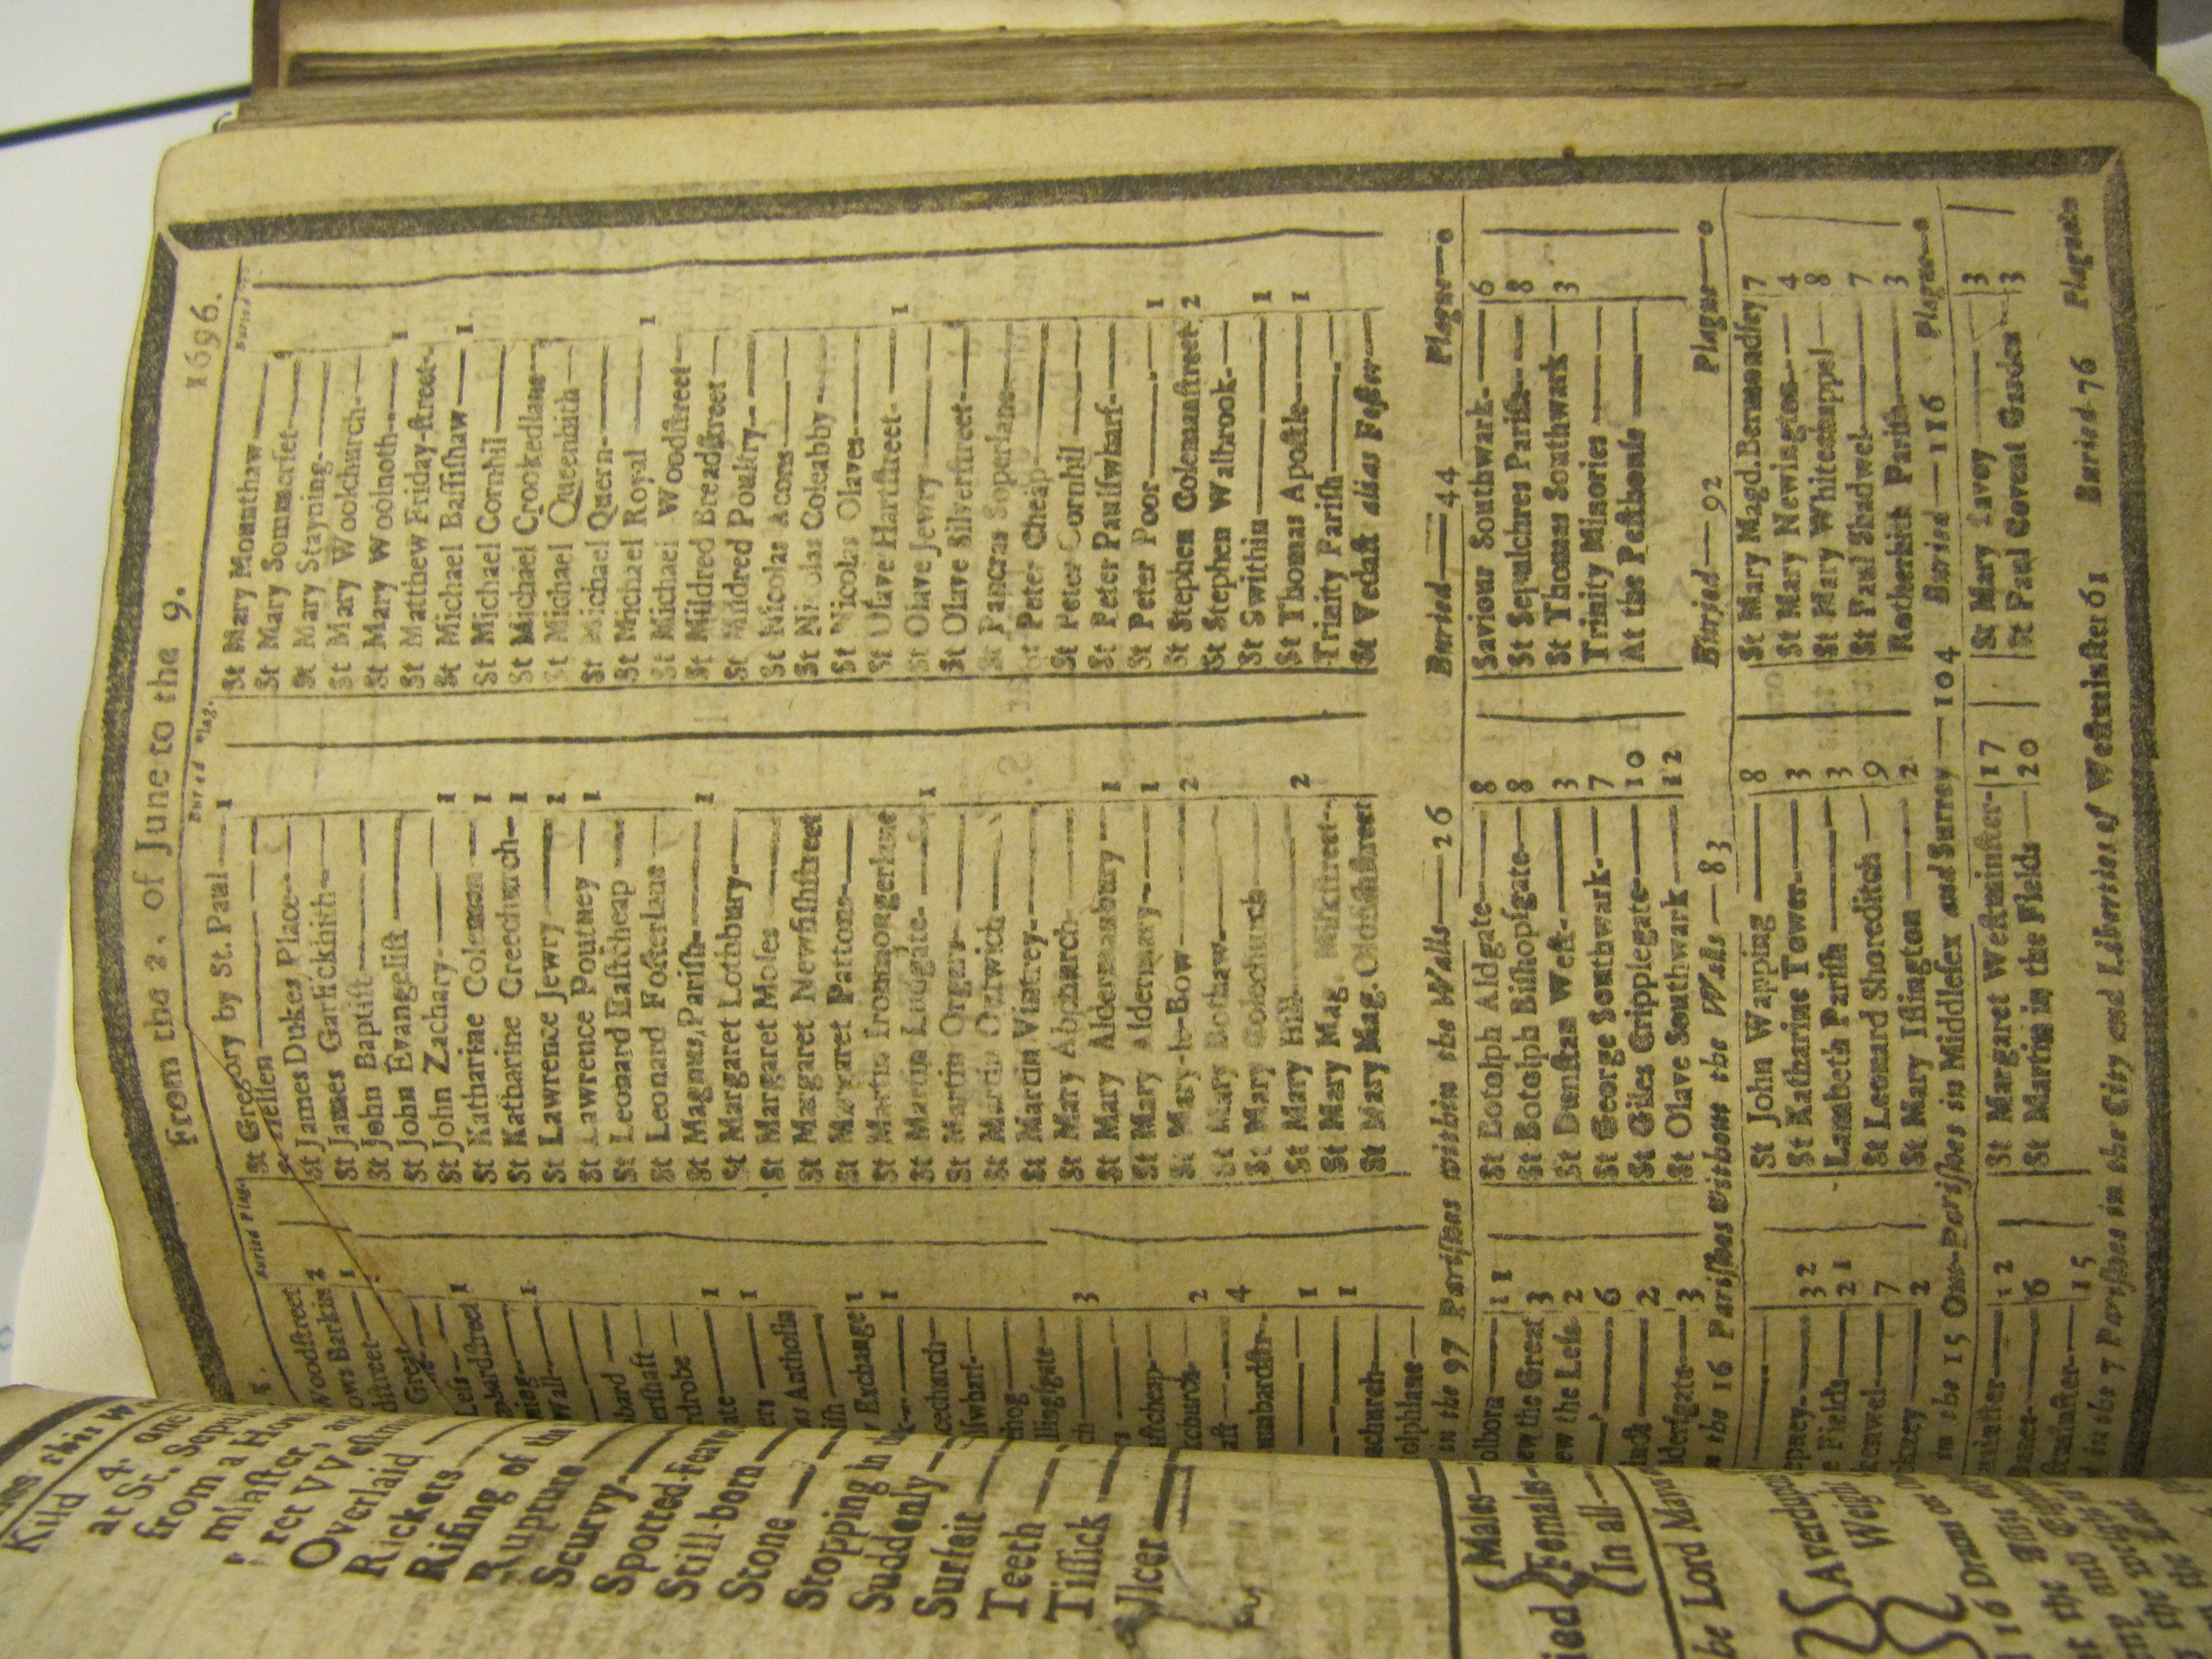 From the 2. of June to the 9. 1696.
Buried Plag.
Woodstreet 2
ows Barkin 1
dstreet
Great
Less 1
bardstreet
ning 1
Wall
bard
ershaft
drobe
ate 1
ers 1
Antholin
ish
Exchange 1
1
cechurch
lswharf
hog
llingsgate
ch 3
astcheap
church 2
aff 4
umbardstr
1
1
church
olphlane
Buried Plag.
St Gregory by St. Paul 1
St Hellen
St James Dukes Place
St James Garlickhith
St John Baptist
St John Evangelist
St John Zachary 1
St Katharine Coleman 1
St Katharine Creechurch 1
St Lawrence Jewry 1
St Lawrence Poutney 1
St Leonard Eastcheap
St Leonard Fosterlane
St Magnus Parish 1
St Margaret Lothbury
St Margaret Moses
St Margaret Newfishstreet
St Margaret Pattons
St Martin Ironmongerlane
St Martin Ludgate 1
St Martin Orgars
St Martin Outwich
St Martin Vintrey
St Mary Abchurch
St Mary Aldermanbury 1
St Mary Aldermary 1
St Mary-le-Bow 2
St Mary Bothaw
St Mary Colechurch
St Mary Hill 2
St Mary Mag. Milkstreet
St Mary Mag. Oldfishstreet
St Mary Mounthaw
St Mary Sommerset
St Mary Stayning
St Mary Woolchurch
St Mary Woolnoth 1
St Matthew Friday-street
St Michael Bassishaw 1
St Michael Cornhil
St Michael Crookedlane
St Michael Queenhith
St Michael Quern
St Michael Royal 1
St Michael Woodstreet
St Mildred Breadstreet
St Mildred Poultry
St Nicolas Acons
St Nicolas Coleabby
St Nicolas Olaves
St Olave Hartstreet 1
St Olave Jewry
St Olave Silverstreet
St Pancras Soperlane
St Peter Cheap
St Peter Cornhil
St Peter Paulswharf
St Peter Poor 1
St Stephen Colemanstreet 2
St Stephen Walbrook
St Swithin 1
St Thomas Apostle 1
Trinity Parish
St Vedast alias Foster
in the 97 Parishes within the Walls—26 Buried—44 Plague—0
olborn 11
ew the Great 3
ew the Less 2
6
2
ldersgate 3
St Botolph Aldgate 8
St Botolph Bishopsgate 8
St Dunstan West 3
St George Southwark 7
St Giles Cripplegate 10
St Olave Southwark 12
Saviour Southwark 6
St Sepulchres Parish 8
St Thomas Southwark 3
Trinity Minories
At the Pesthouse
the 16 Parishes without the Walls—83 Buried—92 Plague—0
32
pney 21
e Fields 7
kenwel 2
ckney
St John Wapping 8
St Katharine Tower 3
Lambeth Parish 3
St Leonard Shoreditch 9
St Mary Islington 2
St Mary Magd. Bermondsey 7
St Mary Newington 4
St Mary Whitechappel 8
St Paul Shadwel 7
Rotherhith Parish 3
in the 15 Out-Parishes in Middlesex and Surrey—104 Buried—116 Plague—0
minster 12
Danes 6
stminster 15
St Margaret Westminster 17
St Martin in the Fields 20
St Mary Savoy 3
St Paul Covent Garden 3
d in the 7 Parishes in the City and Liberties of Westminster 61 Buried 76 Plague 0
Kild 4. one
at St. Sepul
from a Hor
minster, an
ret VVestm
Overlaid
Rickets
Rising of the
Rupture
Scurvy
Spotted-Feave
Still-born
Stone
Stopping in
Suddenly
Surfeit
Teeth
Tissick
Vlcer
Males
Females
In all
be Lord Mayor
Averdupoi
Weight